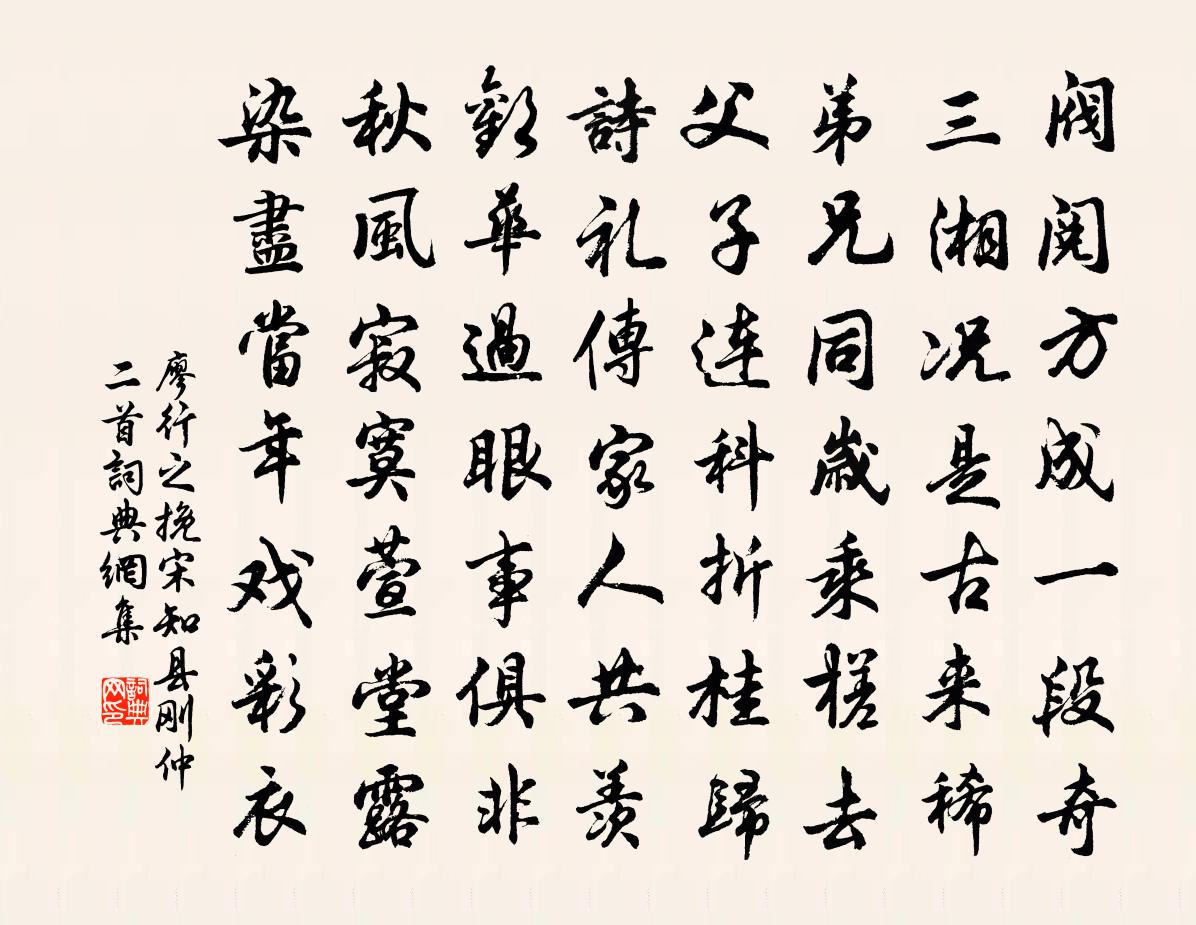 閥閱方成一段奇
三湘况是古来稀
弟兄同歲乘槎去
父子連科折桂歸
詩礼傳家人共羨
歡華過眼事俱非
秋風寂寞萱堂露
染盡當年戏彩衣
廖行之挽宋知县刚仲
二首詞典網集
詞典
网印